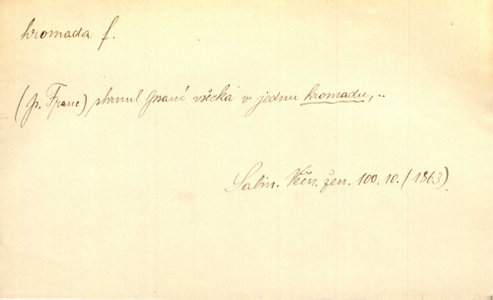 hromada f.
(p. Franc) shrnul psaní všecka v jednu hromadu,..
Sabin. Věčn. žen. 100.10. (1863).